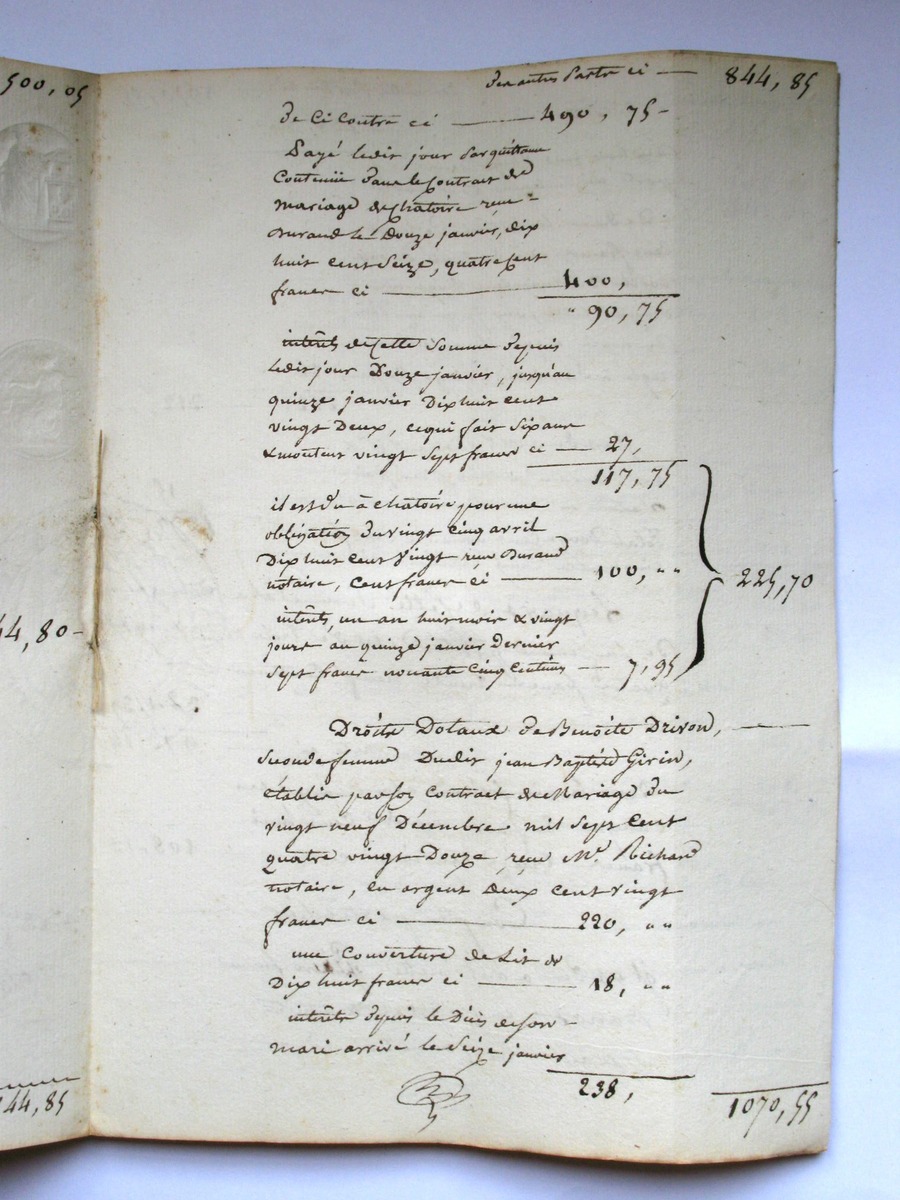 500, 05
des autres Parts ci — 844, 85
de Ci Contre ci — 490, 75 -
Payé ledit jour par quittance
Contenüe dans le Contrat de
mariage de chatoire reçu
Durand le Douze janvier, dix
huit cent Seize, quatre Cent
francs ci — 400,
" 90, 75
intérêts de Cette Somme depuis
ledit jour Douze janvier, jusqu'au
quinze janvier Dix huit cent
vingt Deux, ce qui fait Six ans
& montent vingt Sept francs ci — 27,
117, 75
il est du à chatoire pour une
obligation du vingt Cinq avril
Dix huit Cent Vingt reçu Durand
notaire, Cent francs ci — 100, " "
225, 70
intérêts, un an huit mois & vingt
jours au quinze janvier Dernier
Sept francs nonante Cinq Centimes — 7, 95
Droits Dotaux de Benoîte Drivon, —
Seconde femme Dudit jean Baptiste Girin,
établis par son Contrat de Mariage du
vingt neuf Décembre mil Sept Cent
quatre vingt Douze, reçu Me. Richard
notaire, en argent Deux Cent Vingt
francs ci — 220, " "
une Couverture de Lit de
Dix huit francs ci — 18, " "
intérêts depuis le Décès de son
mari arrivé le Seize janvier
238,
1070, 55
44, 80 -
44, 85